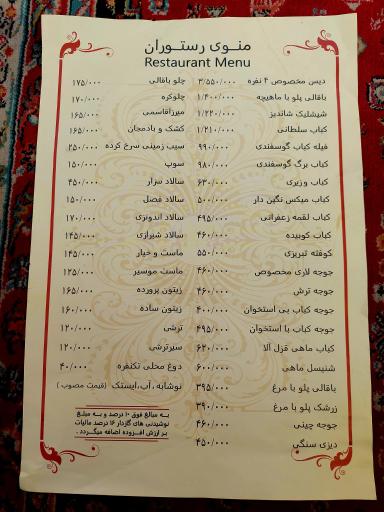 منوی رستوران
Restaurant Menu
دیس مخصوص ۴ نفره ۳/۵۵۰/۰۰۰
باقالی پلو با ماهیچه ۱/۴۰۰/۰۰۰
شیشلیک شاندیز ۱/۲۲۰/۰۰۰
کباب سلطانی ۱/۲۱۰/۰۰۰
فیله کباب گوسفندی ۹۹۰/۰۰۰
کباب برگ گوسفندی ۹۸۰/۰۰۰
کباب وزیری ۶۳۰/۰۰۰
کباب میکس نگین دار ۵۰۰/۰۰۰
کباب لقمه زعفرانی ۴۹۵/۰۰۰
کباب کوبیده ۴۶۰/۰۰۰
کوفته تبریزی ۵۵۰/۰۰۰
جوجه لاری مخصوص ۴۶۰/۰۰۰
جوجه ترش ۴۶۰/۰۰۰
جوجه کباب بی استخوان ۴۰۰/۰۰۰
جوجه کباب با استخوان ۴۹۵/۰۰۰
کباب ماهی قزل آلا ۶۲۰/۰۰۰
شنیسل ماهی ۶۰۰/۰۰۰
باقالی پلو با مرغ ۳۹۵/۰۰۰
زرشک پلو با مرغ ۳۹۰/۰۰۰
جوجه چینی ۴۶۰/۰۰۰
دیزی سنگی ۴۵۰/۰۰۰
چلو باقالی ۱۷۵/۰۰۰
چلوکره ۱۷۰/۰۰۰
میرزاقاسمی ۱۶۵/۰۰۰
کشک و بادمجان ۱۶۵/۰۰۰
سیب زمینی سرخ کرده ۲۵۰/۰۰۰
سوپ ۱۵۰/۰۰۰
سالاد سزار ۴۵۰/۰۰۰
سالاد فصل ۱۵۰/۰۰۰
سالاد اندونزی ۱۷۰/۰۰۰
سالاد شیرازی ۱۴۵/۰۰۰
ماست و خیار ۱۴۵/۰۰۰
ماست موسیر ۱۲۵/۰۰۰
زیتون پرورده ۱۶۵/۰۰۰
زیتون ساده ۱۶۰/۰۰۰
ترشی ۱۲۰/۰۰۰
سیرترشی ۱۲۰/۰۰۰
دوغ محلی تکنفره ۴۰/۰۰۰
نوشابه ، آب، ایستک (قیمت مصوب)
به مبالغ فوق ۱۰ درصد و به مبلغ
نوشیدنی های گازدار ۱۶ درصد مالیات
بر ارزش افزوده اضافه میگردد .